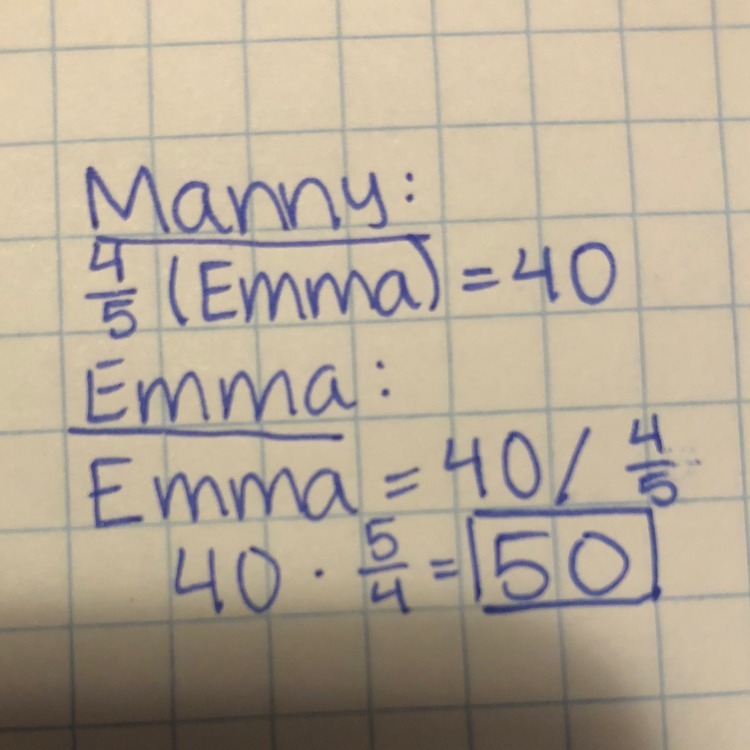 Manny:
4/5 (Emma) = 40
Emma:
Emma = 40 / 4/5
40 · 5/4 = 50